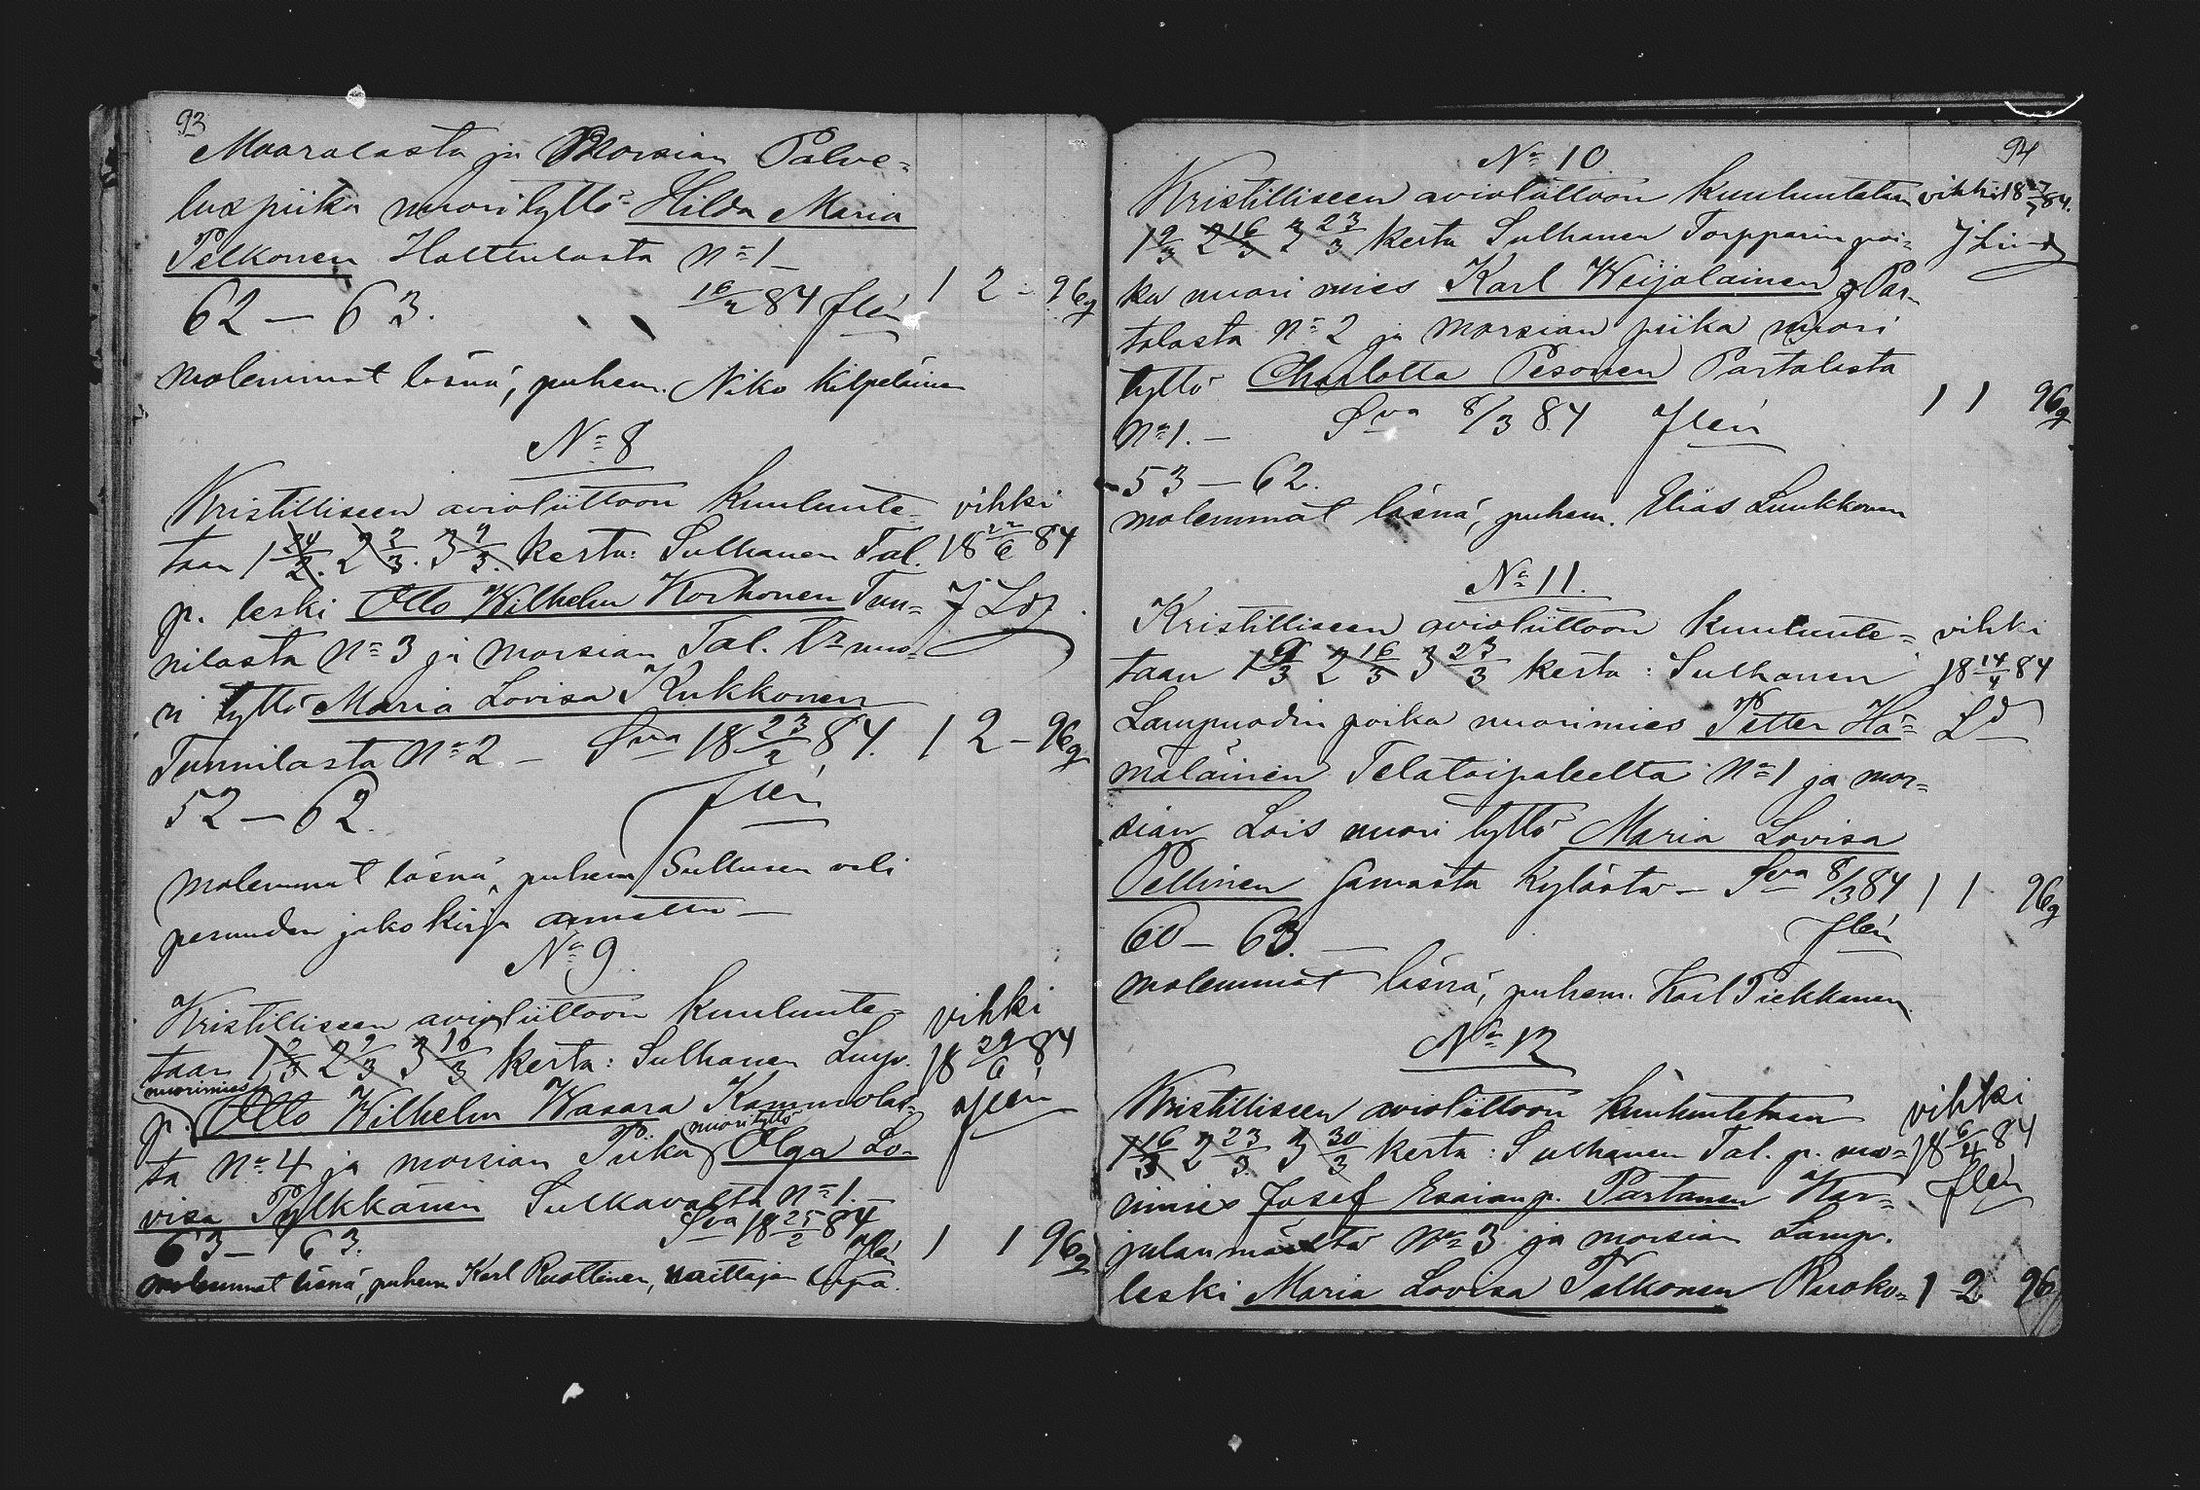 93
Maaralasta ja Morsian Palve-
luspiika nuori tyttö Hilda Maria
Pelkonen Haltulasta No 1 –
62 – 63. 16/2 84 Flén 1 2 – 96
molemmat läsnä, puhem. Niko Kilpeläinen
No 8
Kristilliseen avioliittoon kuulute- vihki
taan 1 24/2. 2 2/3. 3 9/3. kerta: Sulhanen Tal. 18 22/6 84
p. leski Otto Wilhelm Korhonen Tun- J Ld
nilasta No 3 ja morsian Tal. tr nuo-
ri tyttö Maria Lovisa Kukkonen
Tunnilasta No 2 – Sva 18 23/2 84. 1 2 – 96
52 – 62. Flén
molemmat läsnä, puhem Sulhasen veli
perunden jakokirja annettu –
No 9.
Kristilliseen avioliittoon kuulute- vihki
taan 1 2/3 2 9/3 3 16/3 kerta: Sulhanen Lamp. 18 29/6 84
nuorimies
p. Otto Wilhelm Wasara Kammolas- Flén
nuori tyttö
ta No 4 ja morsian Piika Olga Lo-
visa Pylkkänen Sulkavalta No 1. –
63 – 63. Sva 18 25/2 84
Flén 1 1 96
molemmat läsnä, puhem Karl Ruottinen, naittajan lupa.
94
No 10
Kristilliseen avioliittoon kuulutetaan vihki 18 84.
1 9/3 2 16/3 3 23/3 kerta Sulhanen Torpparin poi- J Lind
ka nuori mies Karl Weijalainen Par-
talasta No 2 ja morsian piika nuori
tyttö Charlotta Pesonen Partalasta
No 1. – Sva 8/3 84 Flén 1 1 96
53 – 62.
molemmat läsnä, puhem. Elias Luukkonen
No 11.
Kristilliseen avioliittoon kuulute- vihki
taan 1 9/3 2 16/3 3 23/3 kerta: Sulhanen 18 14/4 84
Lampuodin poika nuorimies Petter Hä- Ld
mäläinen Telataipaleelta No 1 ja mor-
sian Lois nuori tyttö Maria Lovisa
Pellinen Samasta Kylästä – Sva 8/3 84 1 1 96
60 – 63. – Flén
molemmat läsnä, puhem. Karl Piekkanen
No 12
Kristilliseen avioliittoon kuulutetaan vihki
1 16/3 2 23/3 3 30/3 kerta: Sulhanen Tal. p. nuo- 18 6/4 84
rimies Josef Esaianp. Partanen Kar- Flén
julanmäeltä No 3 ja morsian Lamp.
leski Maria Lovisa Pelkonen Ruoko- 1 2 96